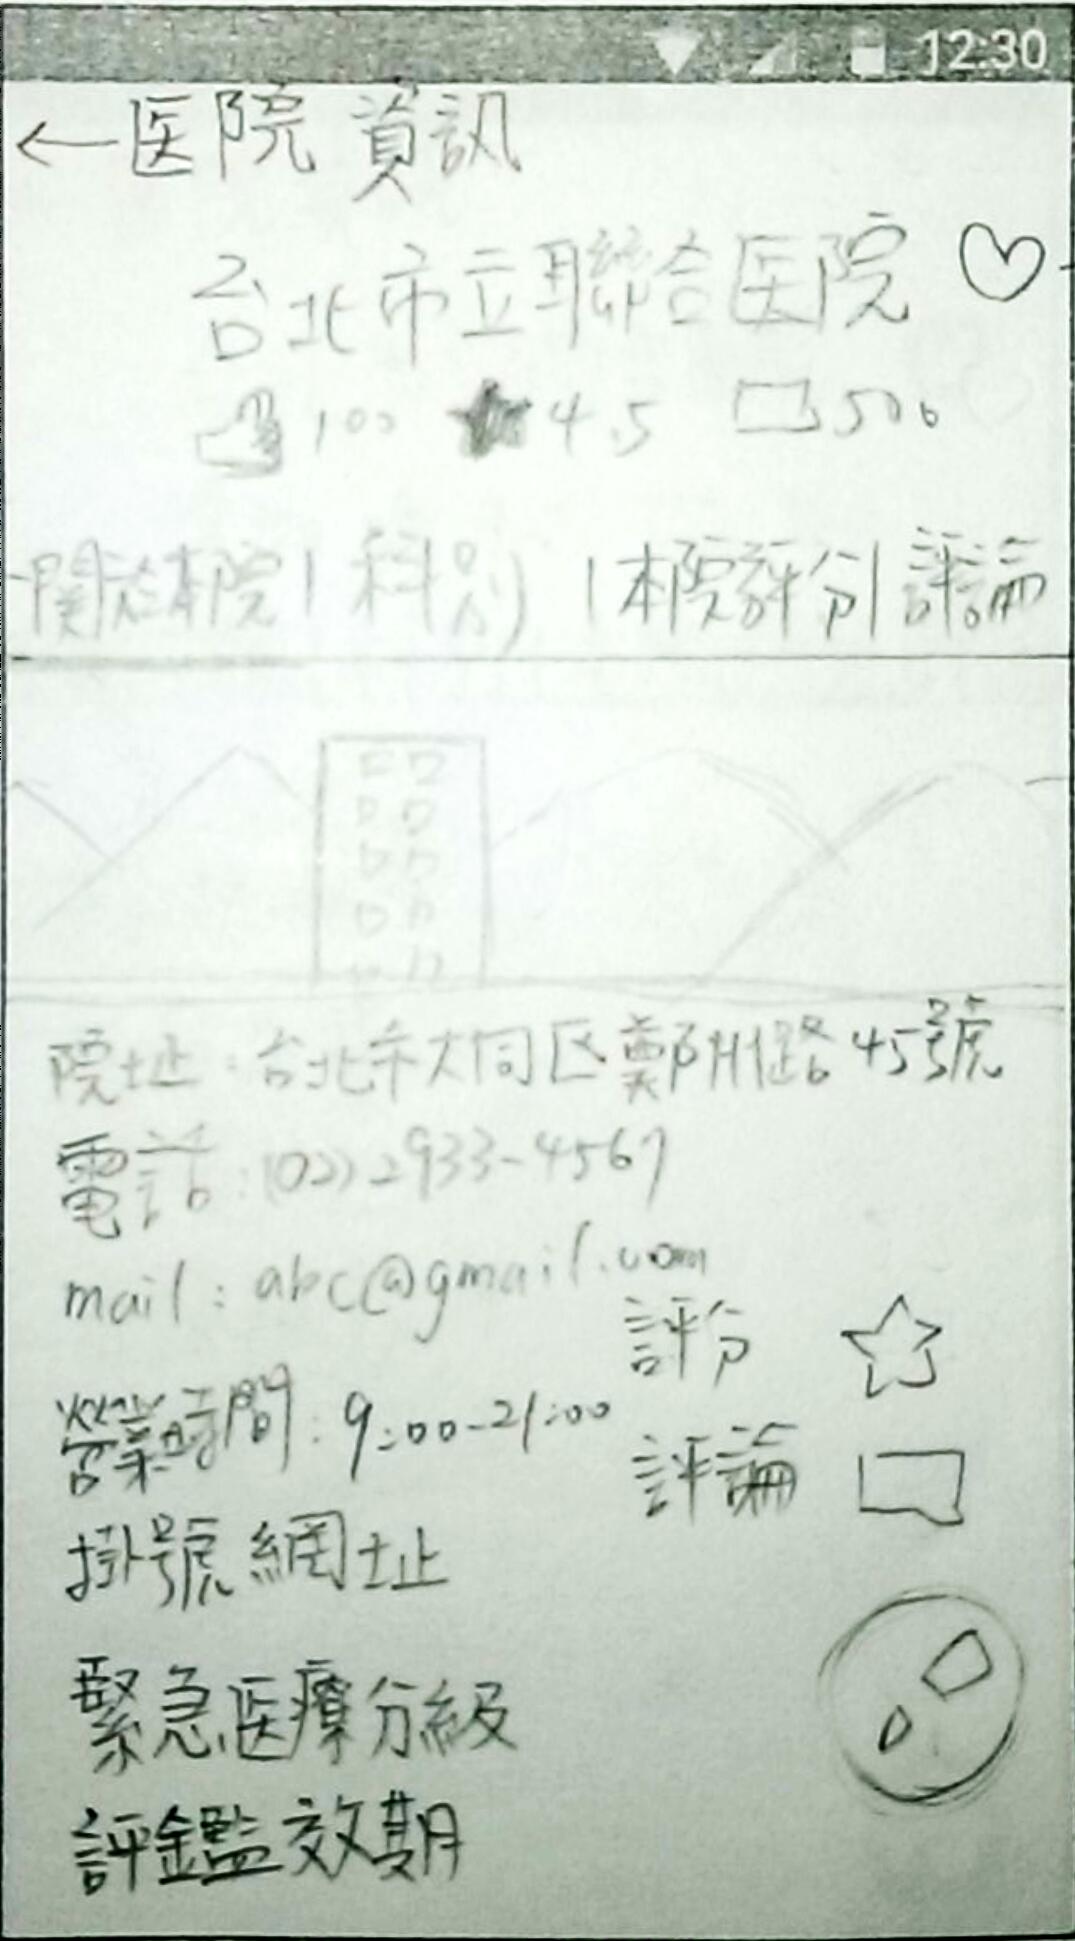 12:30
←医院 資訊
台北市立聯合医院
100 4.5 500
關於本院 | 科別 | 本院評分 | 評論
院址：台北市大同区鄭州路45號
電話：(02)2933-4567
mail：abc@gmail.com
評分
營業時間：9:00-21:00
評論
掛號網址
緊急医療分級
評鑑效期